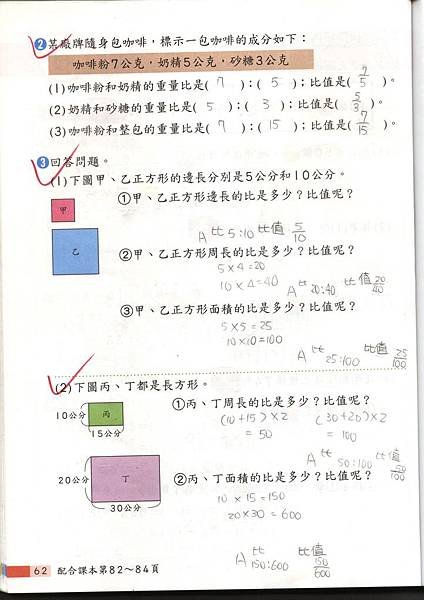 ②某廠牌隨身包咖啡，標示一包咖啡的成分如下：
咖啡粉7公克，奶精5公克，砂糖3公克
(1)咖啡粉和奶精的重量比是( 7 )：( 5 )；比值是( 7/5 )。
(2)奶精和砂糖的重量比是( 5 )：( 3 )；比值是( 5/3 )。
(3)咖啡粉和整包的重量比是( 7 )：( 15 )；比值是( 7/15 )。
③回答問題。
(1)下圖甲、乙正方形的邊長分別是5公分和10公分。
甲
①甲、乙正方形邊長的比是多少？比值呢？
A 比 5:10 比值 5/10
乙
②甲、乙正方形周長的比是多少？比值呢？
5×4=20
10×4=40
A 比 20:40 比值 20/40
③甲、乙正方形面積的比是多少？比值呢？
5×5=25
10×10=100
A 比 25:100 比值 25/100
(2)下圖丙、丁都是長方形。
10公分
丙
15公分
①丙、丁周長的比是多少？比值呢？
(10+15)×2 (30+20)×2
=50 =100
A 比 50:100 比值 50/100
20公分
丁
30公分
②丙、丁面積的比是多少？比值呢？
10×15=150
20×30=600
A 比 150:600 比值 150/600
62 配合課本第82～84頁